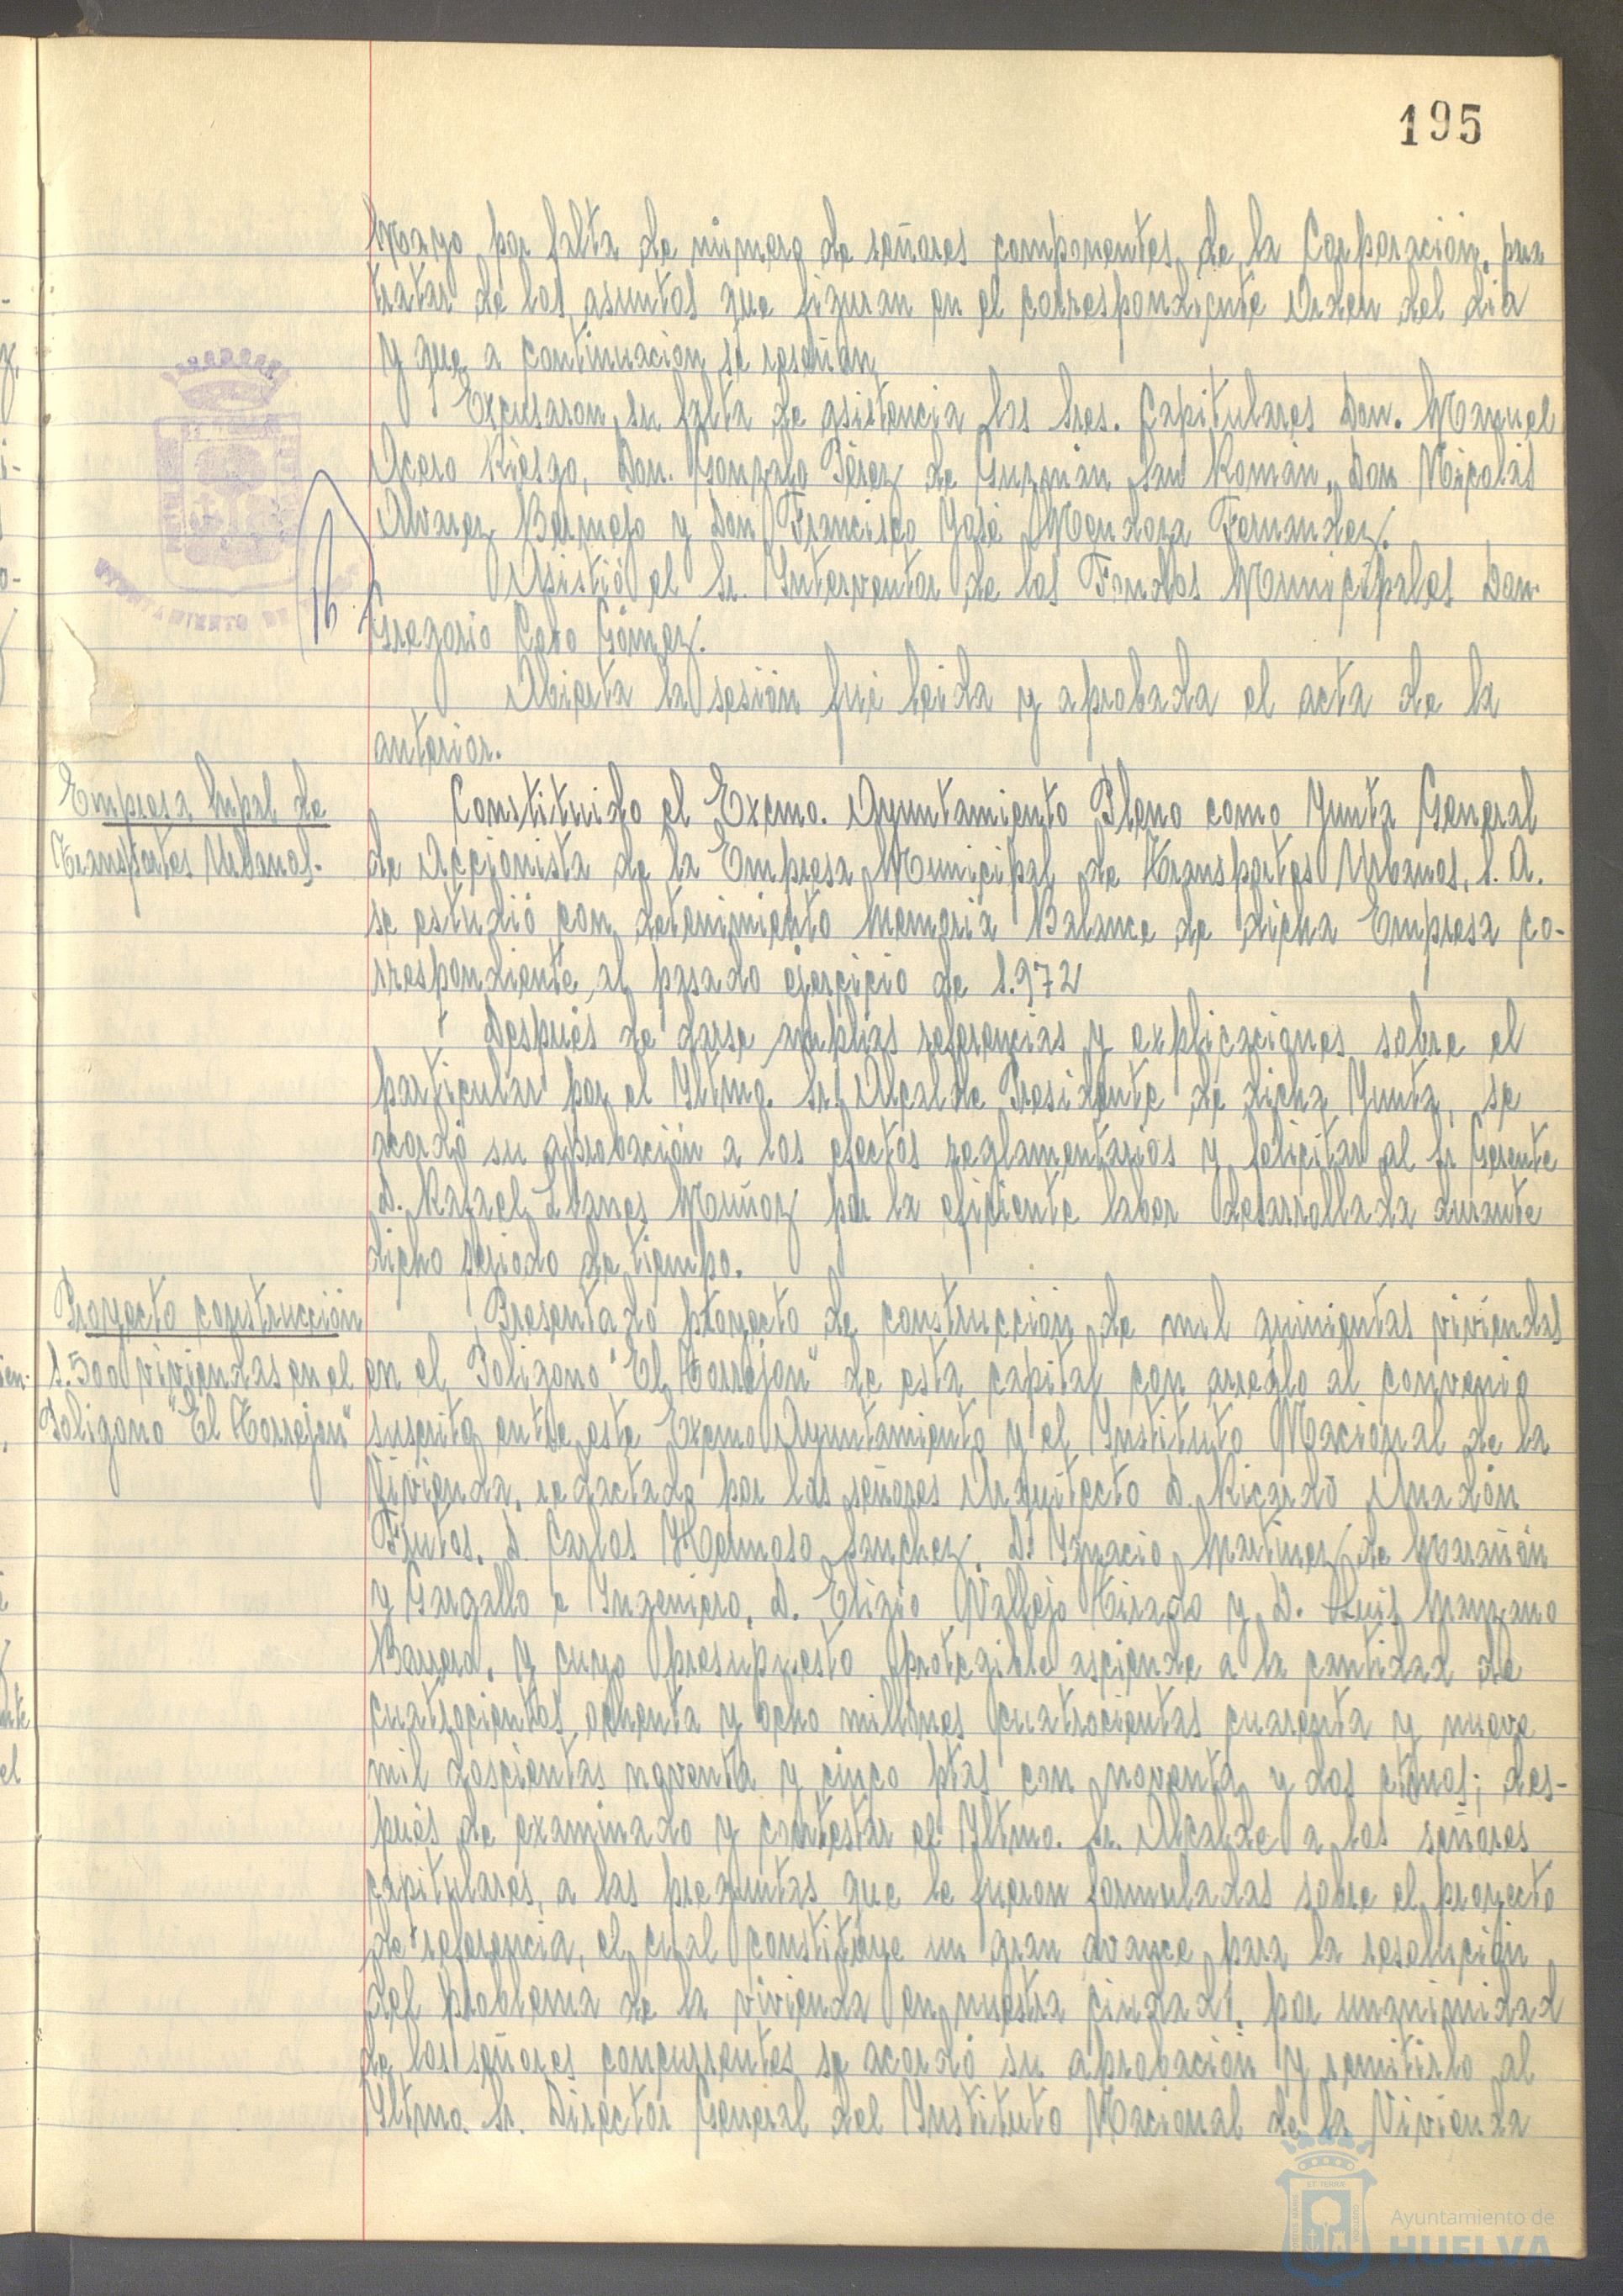 195
Marzo por falta de número de señores componentes de la Corporación, para
tratar de los asuntos que figuran en el correspondiente Orden del día
y que a continuación se reseñan
Excusaron su falta de asistencia los Sres. Capitulares Don. Manuel
Acero Riesgo, Don. Gonzalo Pérez de Guzmán San Román, Don Nicolás
Alvarez Bermejo y Don Francisco José Mendoza Fernandez.
Asistió el Sr. Interventor de los Fondos Municipales Don.
Gregorio Gómez.
Abierta la sesión fué leida y aprobada el acta de la
anterior.
Empresa Mpal de
Transportes Urbanos.
Constituido el Excmo. Ayuntamiento Pleno como Junta General
de Accionista de la Empresa Municipal de Transportes Urbanos, S. A.
se estudió con detenimiento Memoria Balance de dicha Empresa co-
rrespondiente al pasado ejercicio de 1.972
Después de darse amplias referencias y explicaciones sobre el
particular por el Iltmo. Sr. Alcalde Presidente de dicha Junta, se
acordó su aprobación a los efectos reglamentarios y felicitar al Sr Gerente
D. Rafael Muñoz por la eficiente labor desarrollada durante
dicho periodo de tiempo.
Proyecto construcción
1.500 viviendas en el
Poligono "El Torrejon"
Presentado proyecto de construcción de mil quinientas viviendas
en el Poligono "El Torrejon" de esta capital con arreglo al convenio
suscrito entre este Excmo Ayuntamiento y el Instituto Nacional de la
Vivienda, redactado por los señores Arquitecto D. Ricardo Anadón
Frutos, D. Carlos Hermoso Sanchez, D. Ignacio Martinez de Marañón
y Gargallo e Ingeniero, D. Eligio Vallejo Tirado y D. Luis Manzano
Barrero, y cuyo presupuesto protegible asciende a la cantidad de
cuatrocientos ochenta y ocho millones cuatrocientas cuarenta y nueve
mil doscientas noventa y cinco ptas con noventa y dos ctmos; des-
pués de examinado y contestar el Iltmo. Sr. Alcalde a los señores
capitulares, a las preguntas que le fueron formuladas sobre el proyecto
de referencia, el cual constituye un gran avance para la resolución
del problema de la vivienda en nuestra ciudad, por unanimidad
de los señores concurrentes se acordó su aprobación y remitirlo al
Iltmo. Sr. Director General del Instituto Nacional de la Vivienda
Ayuntamiento de
HUELVA